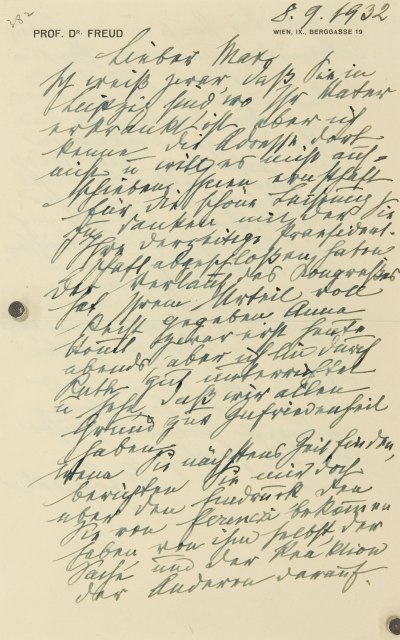 282
8.9.1932
PROF. Dr. FREUD
WIEN, IX., BERGGASSE 19
Lieber Max
Ich weiß zwar, daß Sie in
Leipzig sind, wo Ihr Vater
erkrankt ist, aber ich
kenne die Adresse dort
nicht u will es nicht auf-
schieben, Ihnen ernsthaft
für die schöne Leistung
zu danken mit der Sie
Ihre derzeitige Praesident-
schaft abgeschloßen haben
Der Verlauf des Kongreßes
hat Ihrem Urteil voll
Recht gegeben Anna
kommt zwar erst heute
abends aber ich bin durch
Ruth gut unterrichtet
u seh, daß wir allen
Grund zur Zufriedenheil
haben.
Wenn Sie nächstens Zeit finden,
berichten Sie mir doch
über den Eindruck den
Sie von Ferenczi bekommen
haben von ihm selbst, der
Sache und der Reaktion
der Anderen darauf.